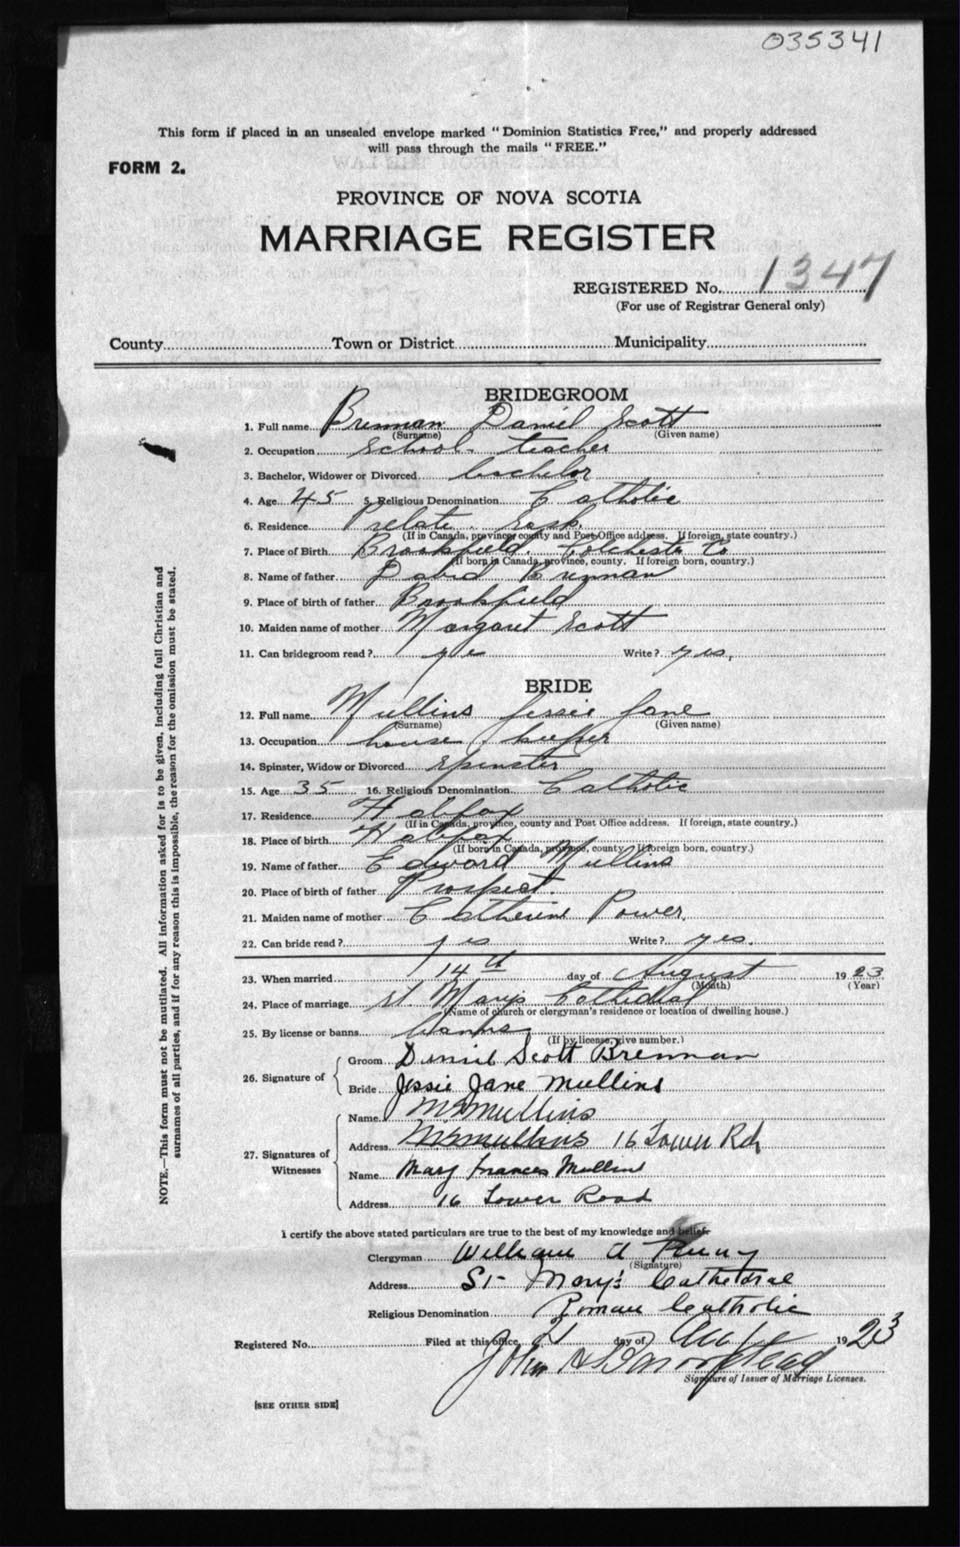 035341
This form if placed in an unsealed envelope marked "Dominion Statistics Free," and properly addressed
will pass through the mails "FREE."
FORM 2.
PROVINCE OF NOVA SCOTIA
MARRIAGE REGISTER
REGISTERED No. 1347
(For use of Registrar General only)
County Town or District Municipality
BRIDEGROOM
1. Full name Brennan Daniel Scott
(Surname) (Given name)
2. Occupation School teacher
3. Bachelor, Widower or Divorced bachelor
4. Age 45 5. Religious Denomination Catholic
6. Residence Prelate. Sask.
(If in Canada, province, county and Post Office address. If foreign, state country.)
7. Place of Birth Brookfield, Colchester Co
(If born in Canada, province, county. If foreign born, country.)
8. Name of father David Brennan
9. Place of birth of father Brookfield
10. Maiden name of mother Margaret Scott
11. Can bridegroom read? yes Write? yes,
BRIDE
12. Full name Mullins Jessie Jane
(Surname) (Given name)
13. Occupation house keeper
14. Spinster, Widow or Divorced Spinster
15. Age 35 16. Religious Denomination Catholic
17. Residence Halifax
(If in Canada, province, county and Post Office address. If foreign, state country.)
18. Place of birth Halifax
(If born in Canada, province, county. If foreign born, country.)
19. Name of father Edward Mullins
20. Place of birth of father Prospect.
21. Maiden name of mother Catherine Power.
22. Can bride read? yes Write? yes.
23. When married 14th day of August 1923
(Month) (Year)
24. Place of marriage St. Mary's Cathedral
(Name of church or clergyman's residence or location of dwelling house.)
25. By license or banns banns
(If by license, give number.)
26. Signature of
Groom Daniel Scott Brennan
Bride Jessie Jane Mullins
27. Signatures of Witnesses
Name Mullins
Address 16 Tower Rd
Name Mary Frances Mullins
Address 16 Tower Road
I certify the above stated particulars are true to the best of my knowledge and belief.
Clergyman William A
(Signature)
Address St Mary's Cathedral
Religious Denomination Roman Catholic
Registered No. Filed at this office, 21 day of Aug 1923
John
Signature of Issuer of Marriage Licenses.
[SEE OTHER SIDE]
NOTE.—This form must not be mutilated. All information asked for is to be given, including full Christian and
surnames of all parties, and if for any reason this is impossible, the reason for the omission must be stated.